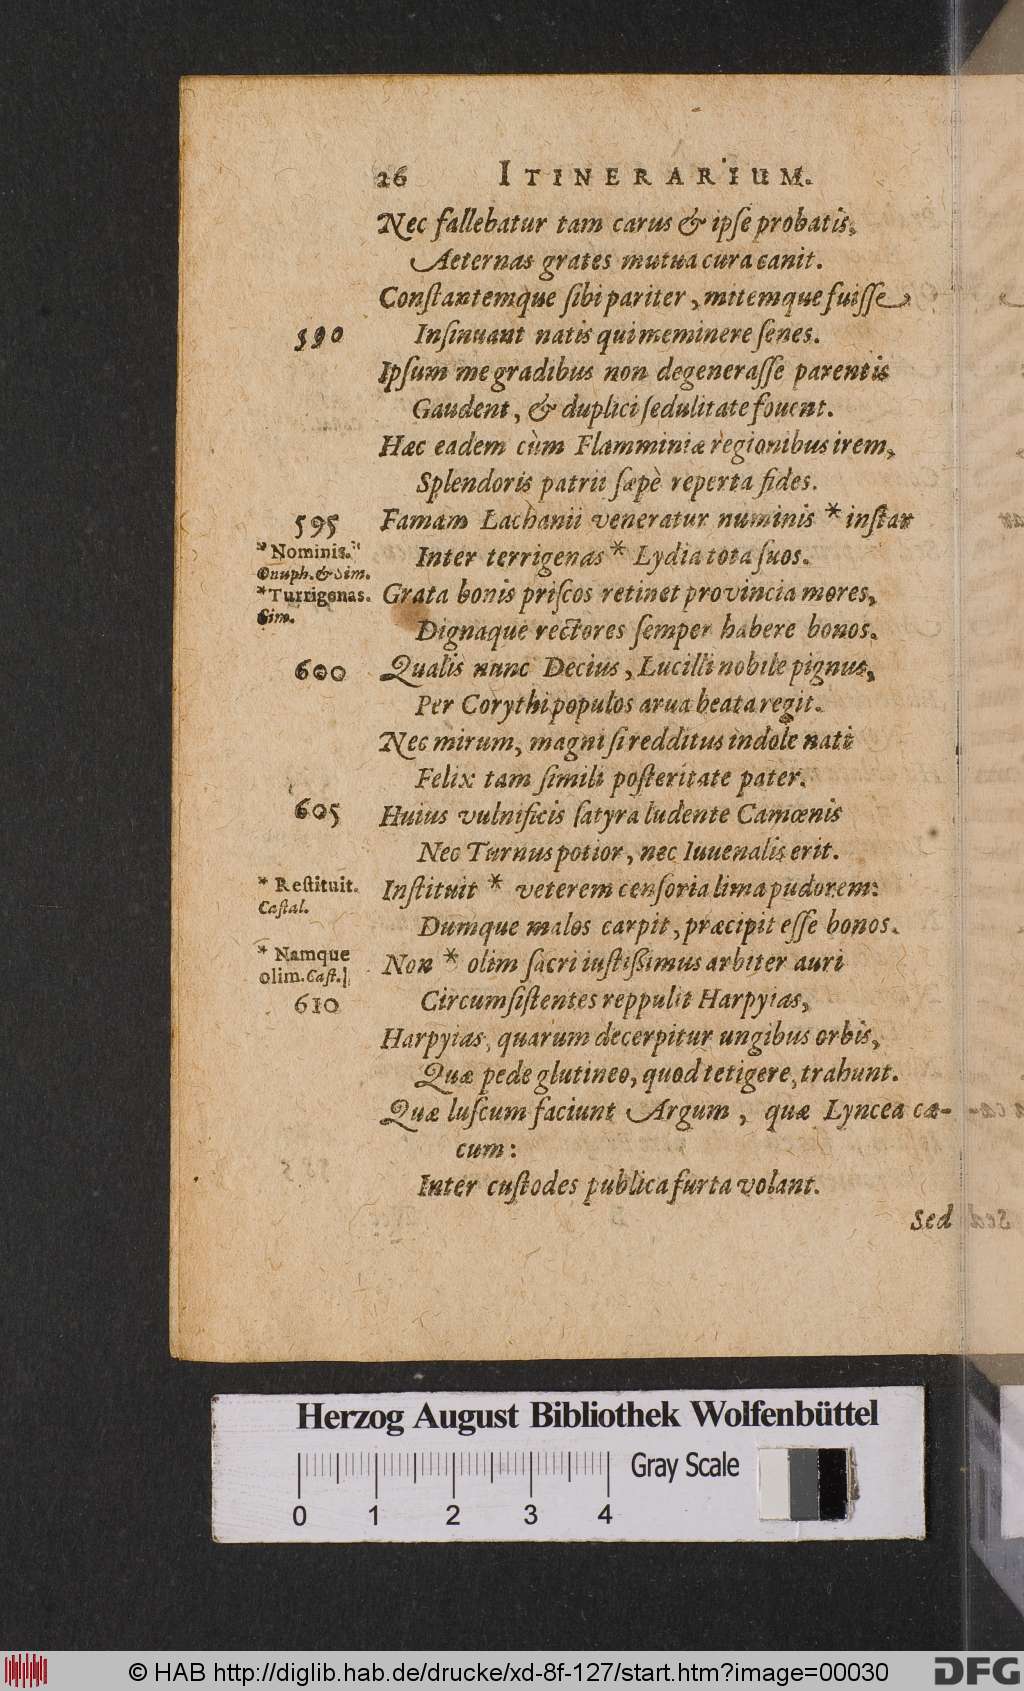 26 ITINERARIUM.
Nec fallebatur tam carus & ipſe probatis,
Aeternas grates mutua cura canit.
Conſtantemque ſibi pariter, mitemque fuiſſe
590 Inſinuant natis qui meminere ſenes.
Ipſum me gradibus non degeneraſſe parentis
Gaudent, & duplici ſedulitate fouent.
Hæc eadem cùm Flamminiæ regionibus irem,
Splendoris patrii ſæpè reperta fides.
595 Famam Lachanii veneratur numinis * inſtar
* Nominis.
Onuph. & Sim.
Inter terrigenas * Lydia tota ſuos.
* Turrigenas.
Sim.
Grata bonis priſcos retinet provincia mores,
Dignaque rectores ſemper habere bonos.
600 Qualis nunc Decius, Lucilli nobile pignus,
Per Corythi populos arua beata regit.
Nec mirum, magni ſi redditus indole nati
Felix tam ſimili poſteritate pater.
605 Huius vulnificis ſatyra ludente Camœnis
Nec Turnus potior, nec Iuuenalis erit.
* Reſtituit.
Caſtal.
Inſtituit * veterem cenſoria lima pudorem:
Dumque malos carpit, præcipit eſſe bonos.
* Namque
olim. Caſt.
Non * olim ſacri iuſtiſſimus arbiter auri
610 Circumſiſtentes reppulit Harpyias,
Harpyias, quarum decerpitur ungibus orbis,
Quæ pede glutineo, quod tetigere, trahunt.
Quæ luſcum faciunt Argum, quæ Lyncea cæ-
cum:
Inter cuſtodes publica furta volant.
Sed
Herzog August Bibliothek Wolfenbüttel
0 1 2 3 4 Gray Scale
© HAB http://diglib.hab.de/drucke/xd-8f-127/start.htm?image=00030
DFG